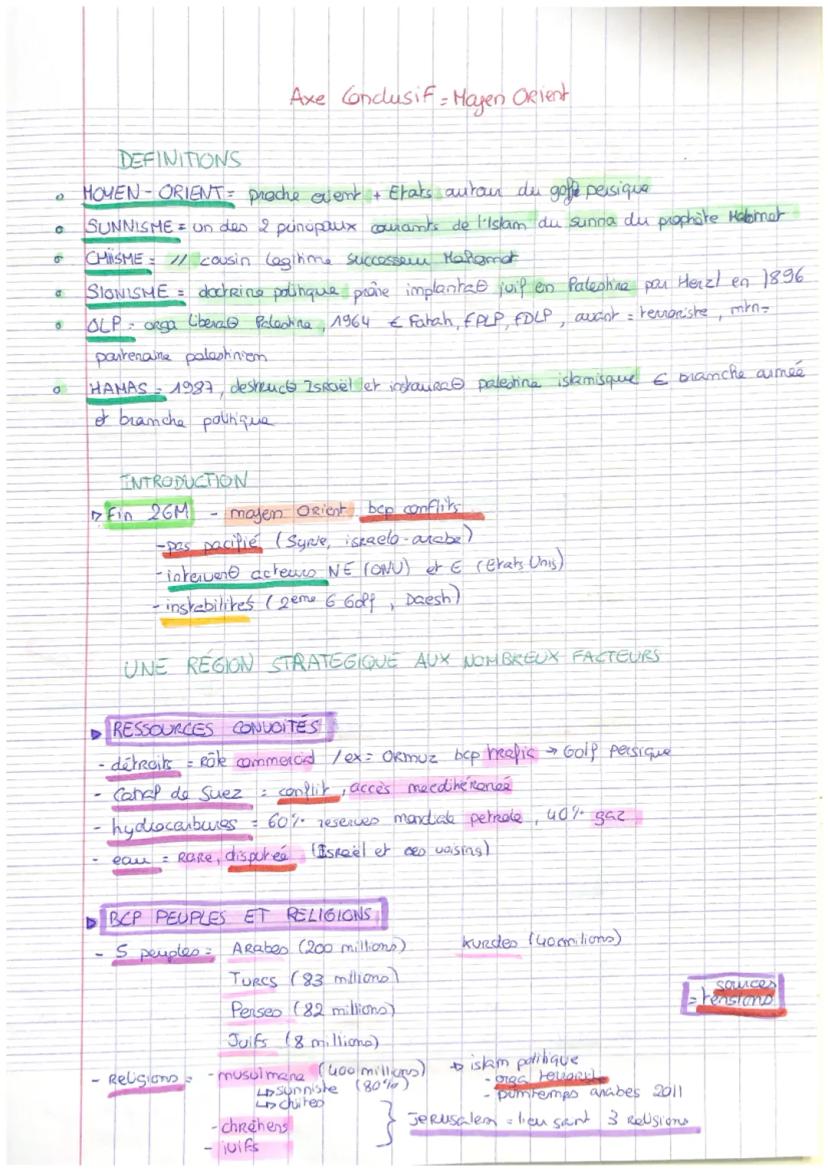 Axe Conclusif = Moyen Orient
DEFINITIONS
MOYEN-ORIENT = proche orient + Etats autour du golfe persique
SUNNISME = un des 2 principaux courants de l'Islam du sunna du prophète Mahomet
CHIISME = // cousin legitime successeur Mahomet
SIONISME = doctrine politique prône implantaΘ juif en Palestine par Herzl en 1896
OLP = orga LiberaΘ Palestine, 1964 € Fatah, FPLP, FDLP, avant = terroriste, mtn=
partenaire palestinien
HAMAS = 1987, destrucΘ ISRaël et instauraΘ palestine islamisque € branche armée
et branche politique
INTRODUCTION
▷ Fin 2GM - moyen Orient bcp conflits
- pas pacifié (Syrie, israelo-arabe)
- intervenΘ acteurs NE (ONU) et E (Etats Unis)
- instabilités (2eme G Golf, Daesh)
UNE RÉGION STRATEGIQUE AUX NOMBREUX FACTEURS
▶ RESSOURCES CONVOITÉS
- détroits = Rôle commercial / ex = ORMUZ bcp trafic → Golf Persique
- Canal de Suez = conflit, accès mediterranée
- hydrocarbures = 60% reserves mondiale petrole, 40% gaz
- eau = RARE, disputée (ISRaël et ses voisins)
▶ BCP PEUPLES ET RELIGIONS
- 5 peuples = Arabes (200 millions) kurdes (40 millions)
Turcs (83 millions)
Perses (82 millions)
Juifs (8 millions)
sources
= tensions
- Religions = - musulmans (400 millions) ↳ islam politique
↳ sunniste (80%) - orga terroriste
↳ chiites - printemps arabes 2011
- chrétiens } JERUSALEM = lieu saint 3 Religions
- juifs